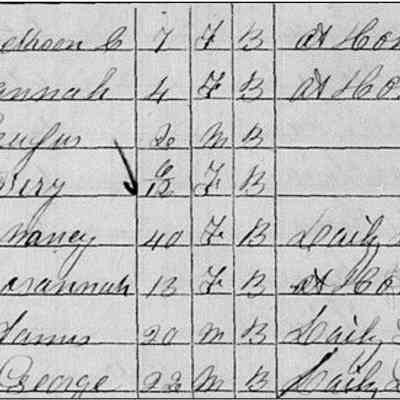 7 F B At Ho
annah 4 F B At Ho
20 M B
6/12 F B
Nancy 40 F B Daily
avannah 13 F B At Ho
James 20 M B Daily
George 22 M B Daily